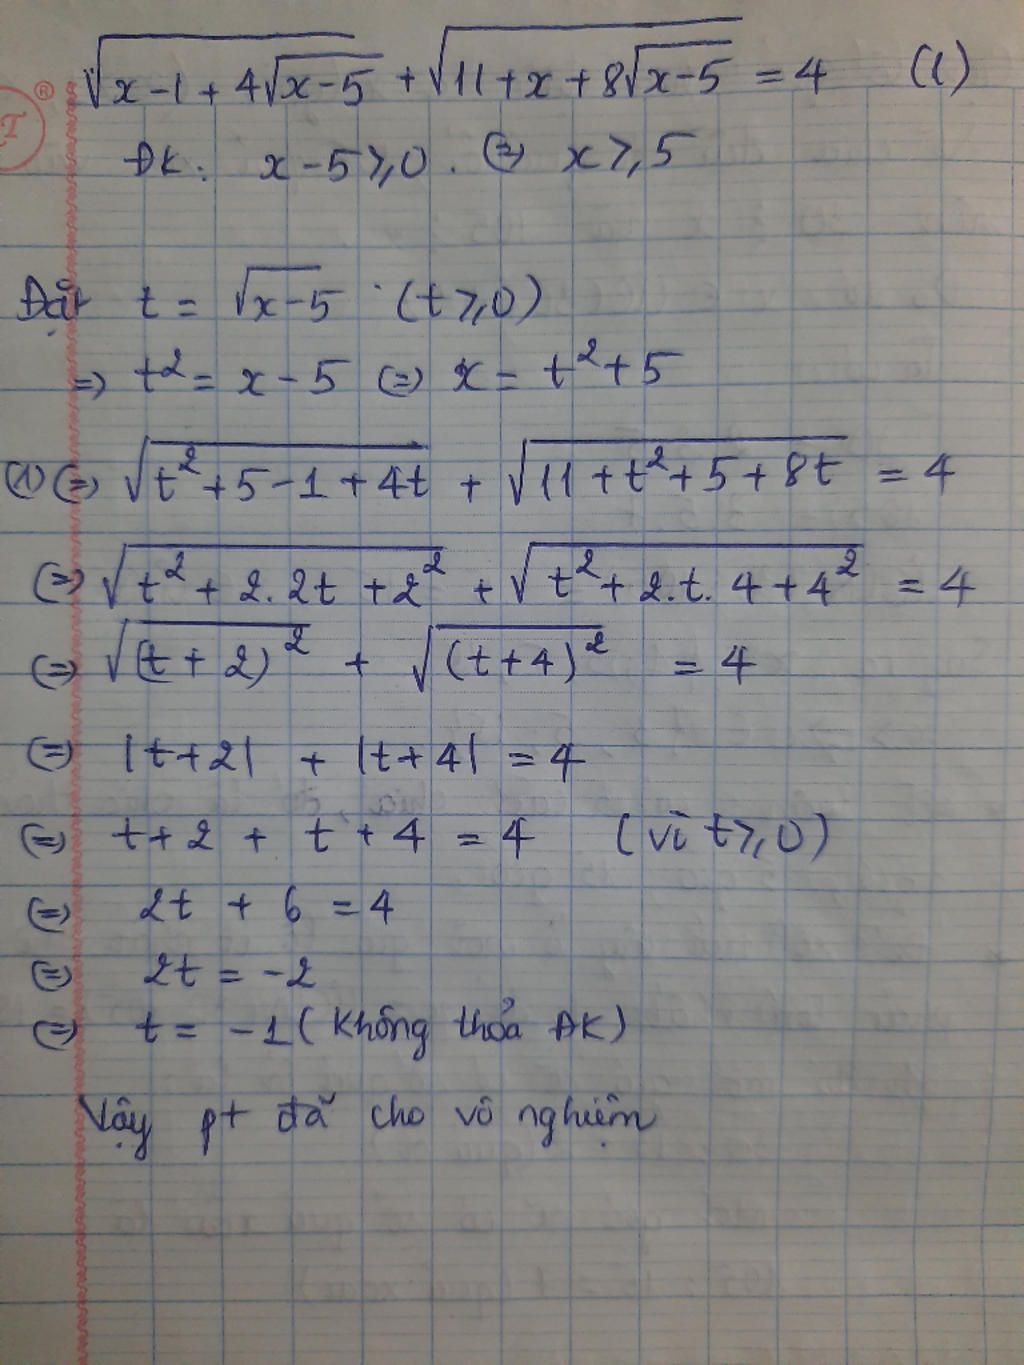 √(x-1+4√(x-5)) + √(11+x+8√(x-5)) = 4 (1)
ĐK: x-5≥0. ⇔ x≥5
Đặt t = √(x-5) (t≥0)
⇒ t² = x-5 ⇔ x = t²+5
(1) ⇔ √(t²+5-1+4t) + √(11+t²+5+8t) = 4
⇔ √(t²+2.2t+2²) + √(t²+2.t.4+4²) = 4
⇔ √((t+2)²) + √((t+4)²) = 4
⇔ |t+2| + |t+4| = 4
⇔ t+2 + t+4 = 4 (vì t≥0)
⇔ 2t + 6 = 4
⇔ 2t = -2
⇔ t = -1 (không thỏa ĐK)
Vậy pt đã cho vô nghiệm